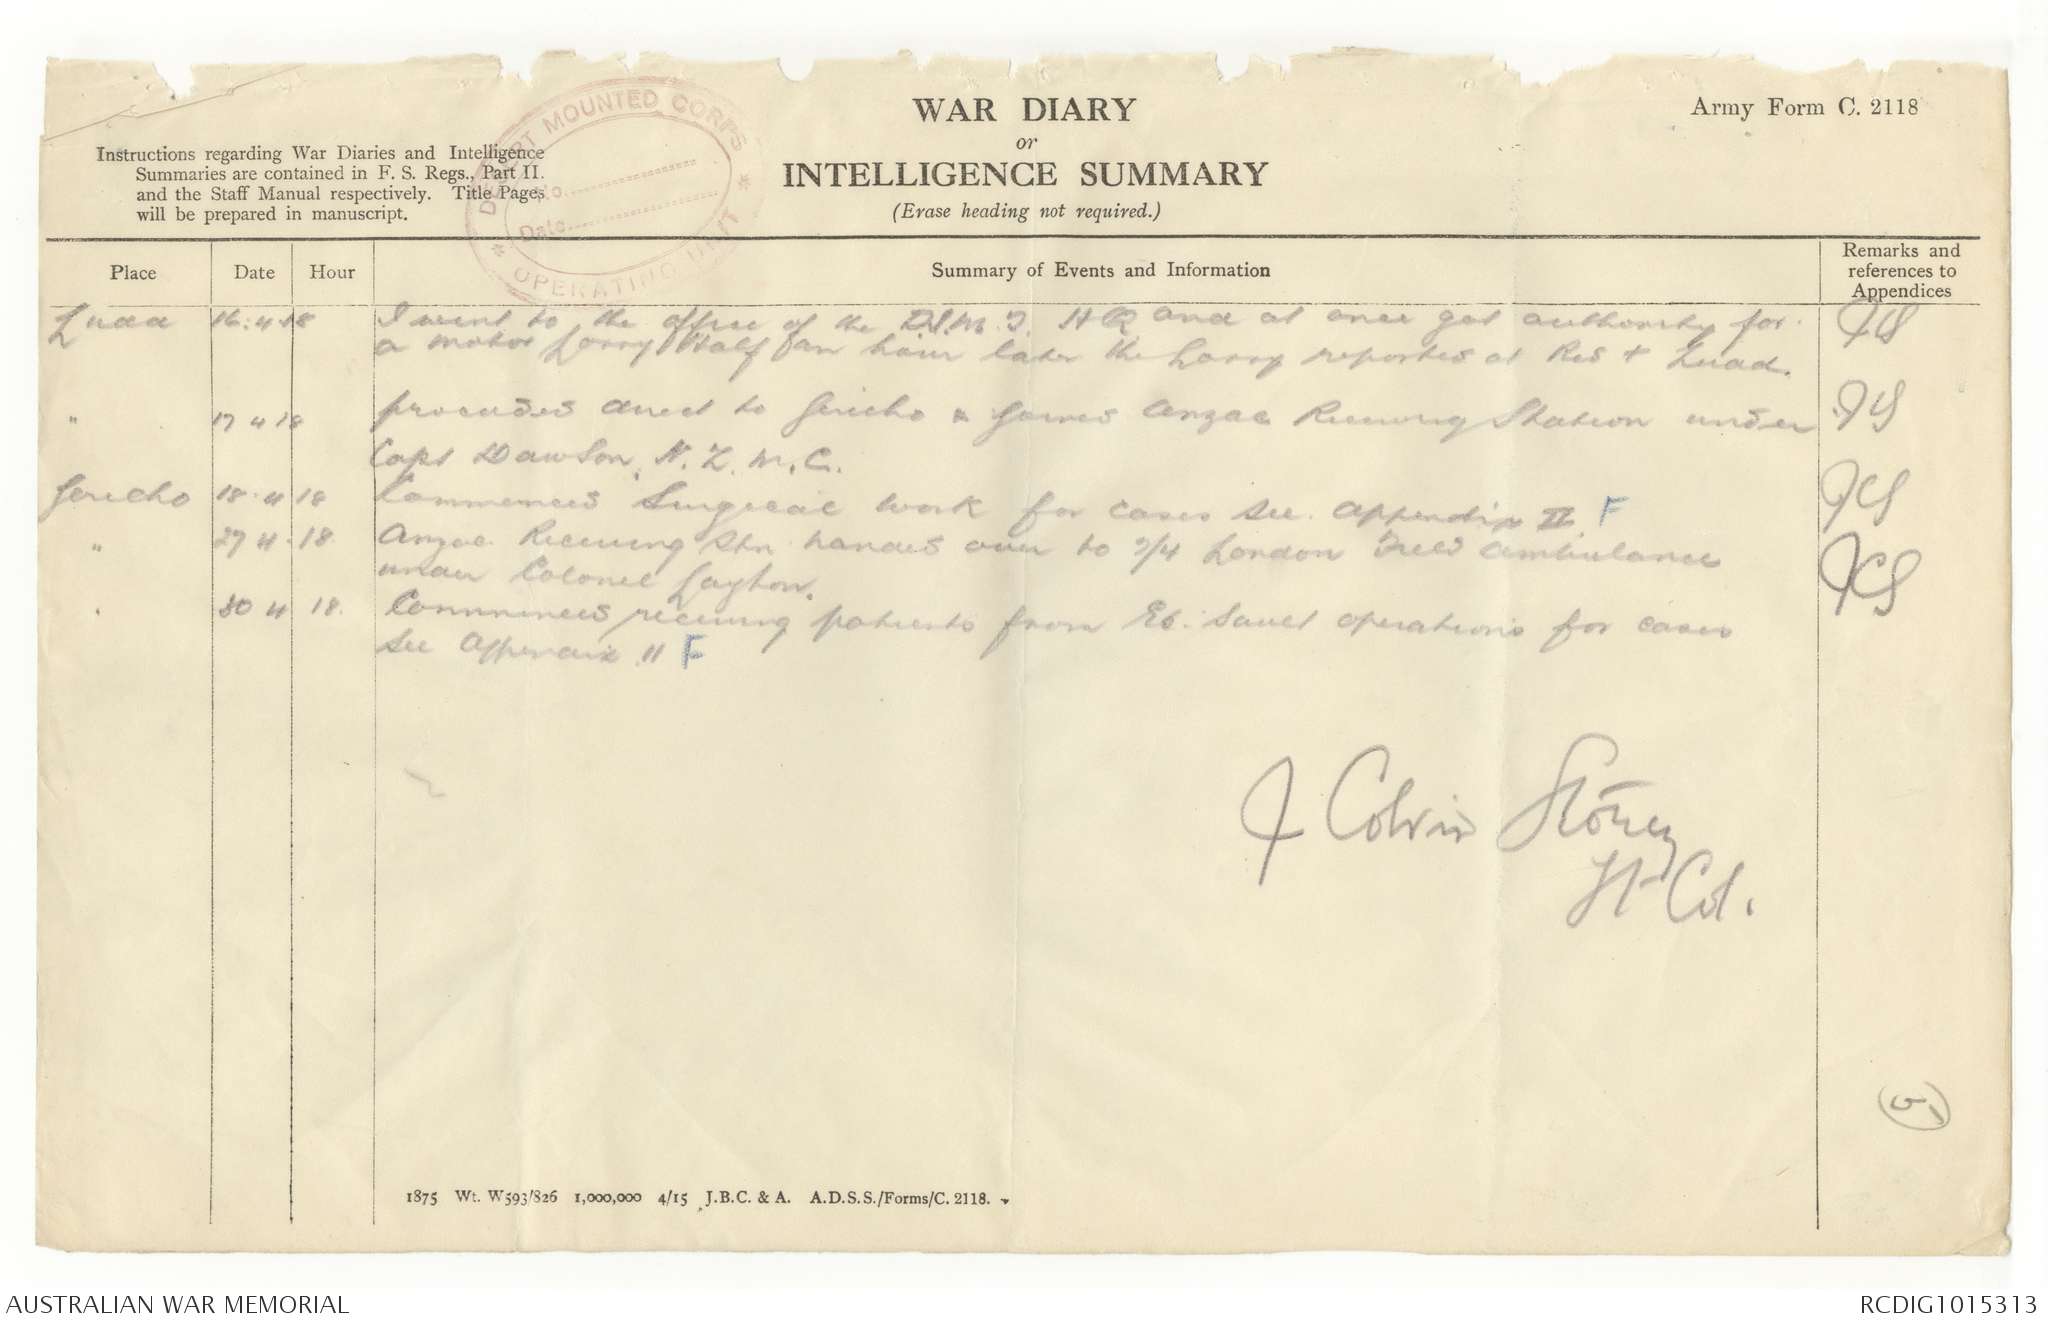 WAR DIARY
or
INTELLIGENCE SUMMARY
(Erase heading not required.)
Army Form C. 2118
Instructions regarding War Diaries and Intelligence
Summaries are contained in F. S. Regs., Part II.
and the Staff Manual respectively. Title Pages
will be prepared in manuscript.
DESERT MOUNTED CORPS
No.
Date
* OPERATING UNIT *
Place Date Hour Summary of Events and Information Remarks and references to Appendices
Ludd 16.4.18 I went to the office of the D.D.M.S. HQ and at once got authority for JCS
a motor Lorry Half an hour later the Lorry reported at Res + Ludd.
" 17 4 18 proceeded direct to Jericho & joined Anzac Receiving Station under JCS
Capt Dawson. N.Z.M.C.
Jericho 18.4.18 Commenced Surgical work for cases see Appendix II F JCS
" 27 4.18 Anzac Receiving Stn handed over to 2/4 London Field Ambulance JCS
under Colonel Layton.
" 30 4 18. Commenced receiving patients from Es. Sault operations for cases
see Appendix II F
J Colvin Storey
Lt Col.
5
1875 Wt. W593/826 1,000,000 4/15 J.B.C. & A. A.D.S.S./Forms/C. 2118.
AUSTRALIAN WAR MEMORIAL
RCDIG1015313